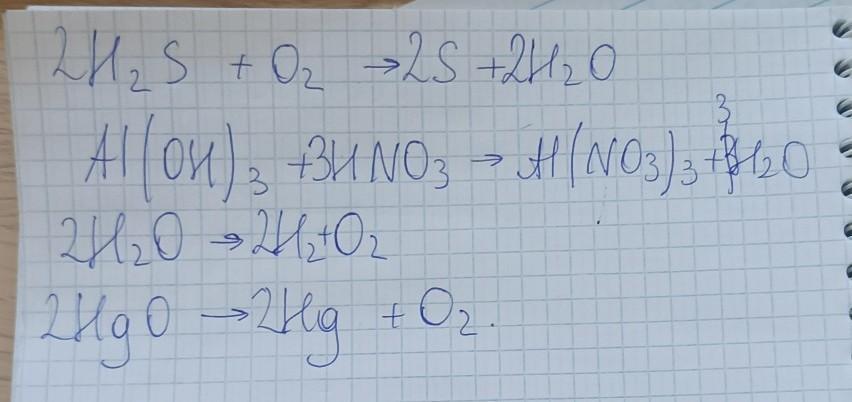 2H₂S + O₂ → 2S + 2H₂O
Al(OH)₃ + 3HNO₃ → Al(NO₃)₃ + 3H₂O
2H₂O → 2H₂ + O₂
2HgO → 2Hg + O₂.